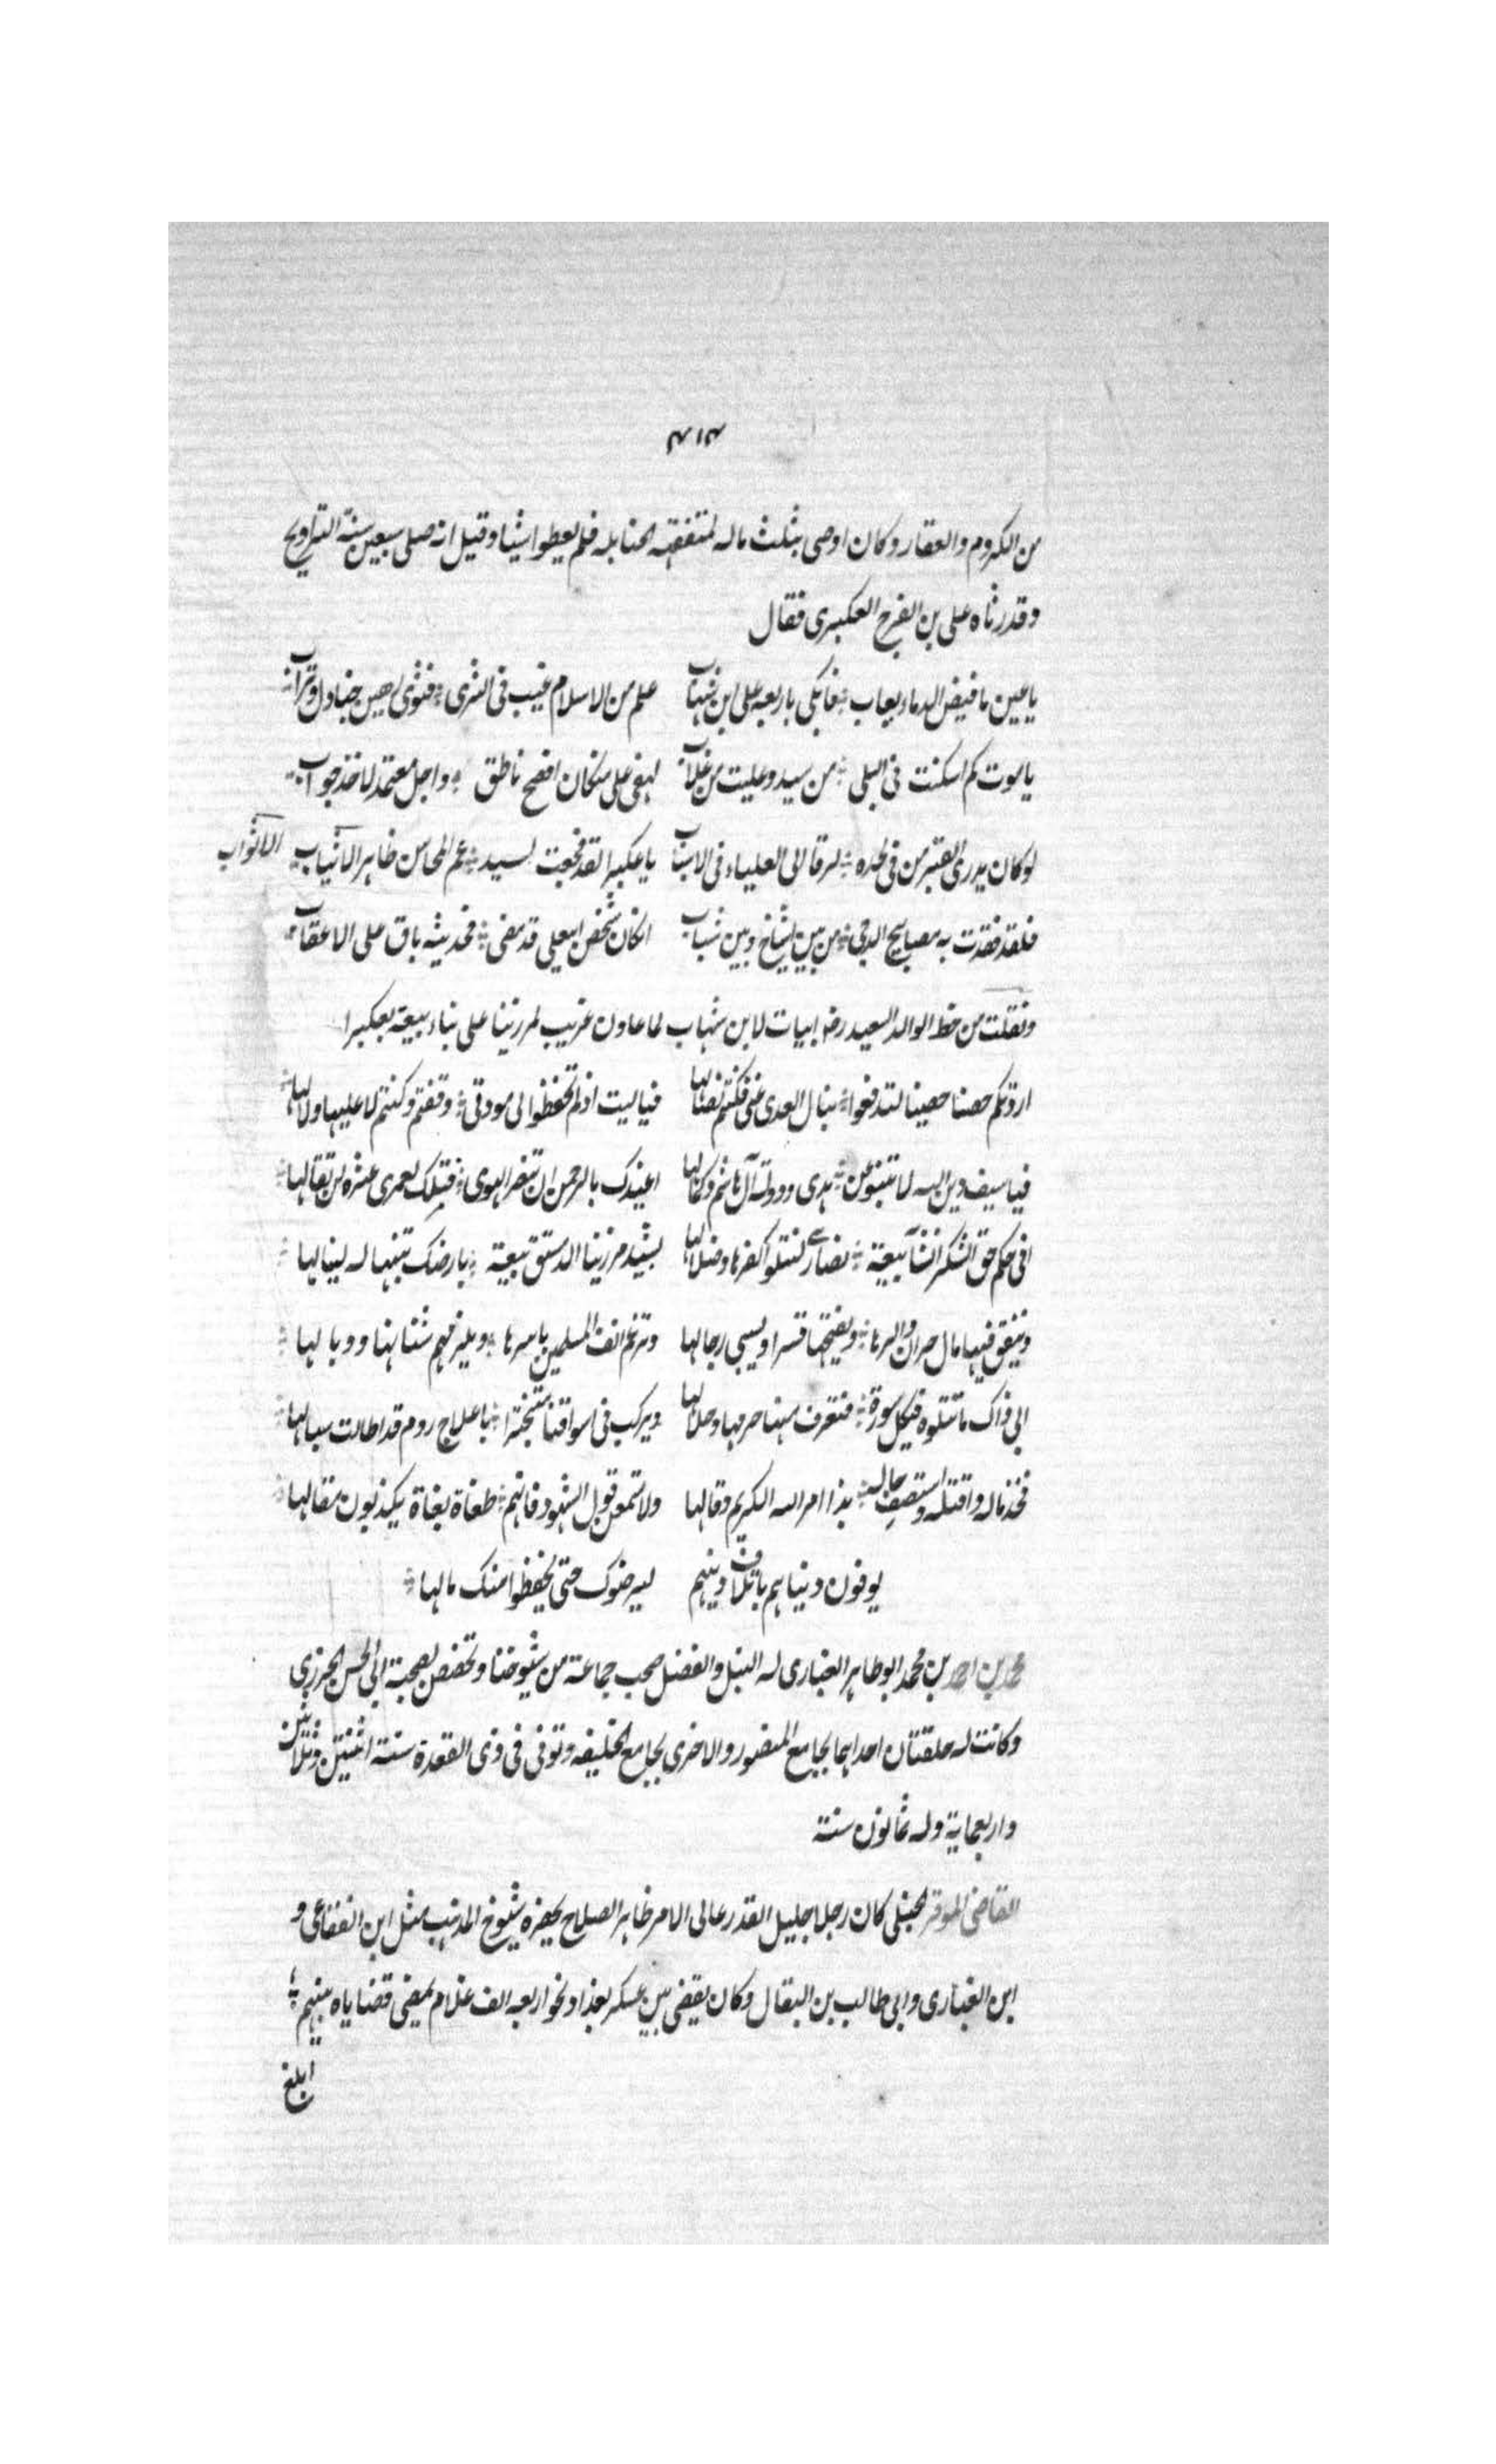 ٤١٤
من الكروم والعقار وكان اوصى بثلث ماله لمتفقهة الحنابله فلم يعطوا شيئا وقيل انه صلى سبعين سنة التراويح
وقد رثاه على بن الفرج العكبرى فقال
يا عين ما فيض الدماء بعاب فابكى باربعة على ابن شهاب علم من الاسلام غيب فى الثرى فثوى رهين جنادل وتراب
يا موت كم اسكنت فى البلى من سيد وعليت من غلاب لهفى على من كان افصح ناطق واجل معتمد لاخذ جواب
لو كان يدرى القبر من فى لحده لرقا الى العلياء فى الاسباب يا عكبرا لقد فجعت لسيد عم المحاسن طاهر الانياب الاثواب
فلقد فقدت به مصابيح الدجى من بين اشياخ وبين شباب ان كان شخص ابى على قد مضى فحديثه باق على الاعقاب
ونقلت من خط الوالد السعيد رضه ابيات لابن شهاب لما عاون غريب لمرزبنا على بناء بيعة بعكبرا
اردتكم حصنا حصينا لتدفعوا نبال العدى عنى فكنتم نصالها فيا ليت اذ لم تحفظوا لى مودتى وقفتم وكنتم لا عليها ولا لها
فيا سيف دين الله لا تنبو عن هدى ودولة آل هاشم وكمالها اعيذك بالرحمن ان تنصر الهوى فتلك لعمرى عثرة لن تقالها
افى حكم حق الشكر انشاء بيعة نصارى لتتلوا كفرها وضلالها يشيد مرزبنا الدمستق بيعة بارضك تبنيها له لينالها
وينفق فيها مال حران والرها ويفتحها قسرا ويسبى رجالها وترغم انف المسلمين باسرها ويلزمهم شنانها ووبالها
ابى ذاك ما تتلوه فى كل سورة فتعرف منها حرمها وحلالها ويركب فى اسواقنا متبخترا باعلاج روم قد اطالت سبالها
فخذ ماله واقتله واستصف حاله بذا امر الله الكريم وقالها ولا تسمعن قول الشهود فانهم طغاة بغاة يكذبون مقالها
يوفون دنياهم باتلاف دينهم ليرضوك حتى يحفظوا منك مالها
محمد بن احمد بن محمد ابو طاهر الغبارى له النبل والفضل صحب جماعة من شيوخنا وتخصص لصحبة ابى الحسن الجزرى
وكانت له حلقتان احداهما بجامع المنصور والاخرى بجامع الخليفه وتوفى فى ذى القعدة سنة اثنتين وثلاثين
واربعماية وله ثمانون سنة
القاضى الموقر الحنبلى كان رجلا جليل القدر عالى الامر ظاهر الصلاح يحضره شيوخ المذهب مثل ابن الفقاعى و
ابن الغبارى وابى طالب بن البقال وكان يقضى بين عسكر بغداد نحو اربعه الف غلام يمضى قضاياه بينهم
ابلغ